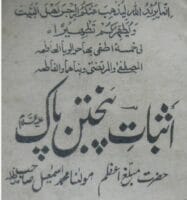 انما یرید اللہ لیذھب عنکم الرجس اھل البیت
ویطھرکم تطھیرا
لی خمسۃ اطفی بھا حر الوباء الحاطمہ
المصطفی والمرتضی وابناھما والفاطمہ
اثبات پنجتن پاک
حضرت مبلغ اعظم مولانا محمد اسمعیل صاحب